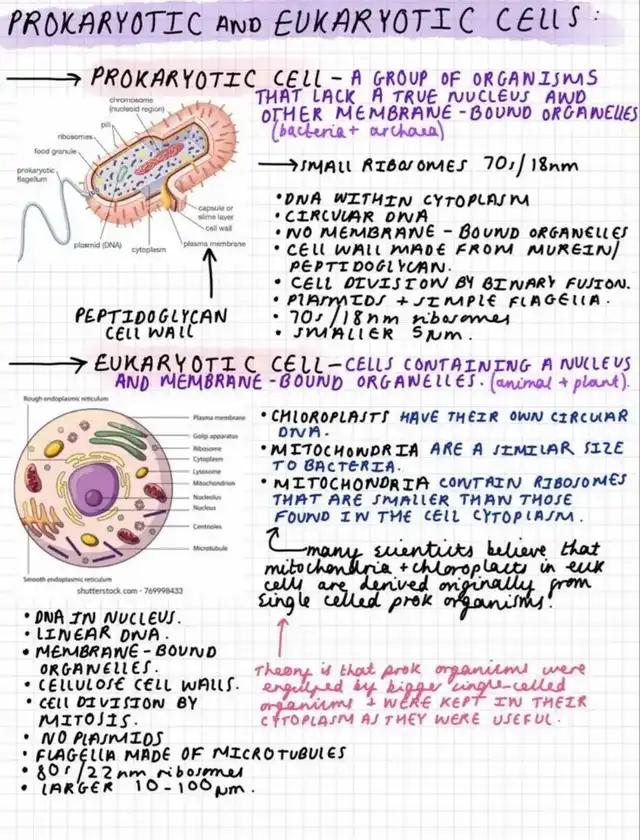 PROKARYOTIC AND EUKARYOTIC CELLS:
PROKARYOTIC CELL - A GROUP OF ORGANISMS
THAT LACK A TRUE NUCLEUS AND
OTHER MEMBRANE-BOUND ORGANELLES
(bacteria + archaea)
chromosome
(nucleoid region)
pili
ribosomes
food granule
prokaryotic
flagellum
plasmid (DNA)
cytoplasm
capsule or
slime layer
cell wall
plasma membrane
PEPTIDOGLYCAN
CELL WALL
SMALL RIBOSOMES 70s/18nm
• DNA WITHIN CYTOPLASM
• CIRCULAR DNA
• NO MEMBRANE-BOUND ORGANELLES
• CELL WALL MADE FROM MUREIN/
PEPTIDOGLYCAN.
• CELL DIVISION BY BINARY FUSION.
• PLASMIDS + SIMPLE FLAGELLA.
• 70s/18nm ribosomes
• SMALLER 5μm.
EUKARYOTIC CELL - CELLS CONTAINING A NUCLEUS
AND MEMBRANE-BOUND ORGANELLES. (animal + plant).
Rough endoplasmic reticulum
Plasma membrane
Golgi apparatus
Ribosome
Cytoplasm
Lysosome
Mitochondrion
Nucleolus
Nucleus
Centrioles
Microtubule
Smooth endoplasmic reticulum
shutterstock.com · 769998433
• CHLOROPLASTS HAVE THEIR OWN CIRCULAR
DNA.
• MITOCHONDRIA ARE A SIMILAR SIZE
TO BACTERIA.
• MITOCHONDRIA CONTAIN RIBOSOMES
THAT ARE SMALLER THAN THOSE
FOUND IN THE CELL CYTOPLASM.
many scientists believe that
mitochondria + chloroplasts in euk
cells are derived originally from
single celled prok organisms.
Theory is that prok organisms were
engulfed by bigger single-celled
organisms + WERE KEPT IN THEIR
CYTOPLASM AS THEY WERE USEFUL.
• DNA IN NUCLEUS.
• LINEAR DNA.
• MEMBRANE-BOUND
ORGANELLES.
• CELLULOSE CELL WALLS.
• CELL DIVISION BY
MITOSIS.
• NO PLASMIDS
• FLAGELLA MADE OF MICROTUBULES
• 80s/22nm ribosomes
• LARGER 10-100μm.